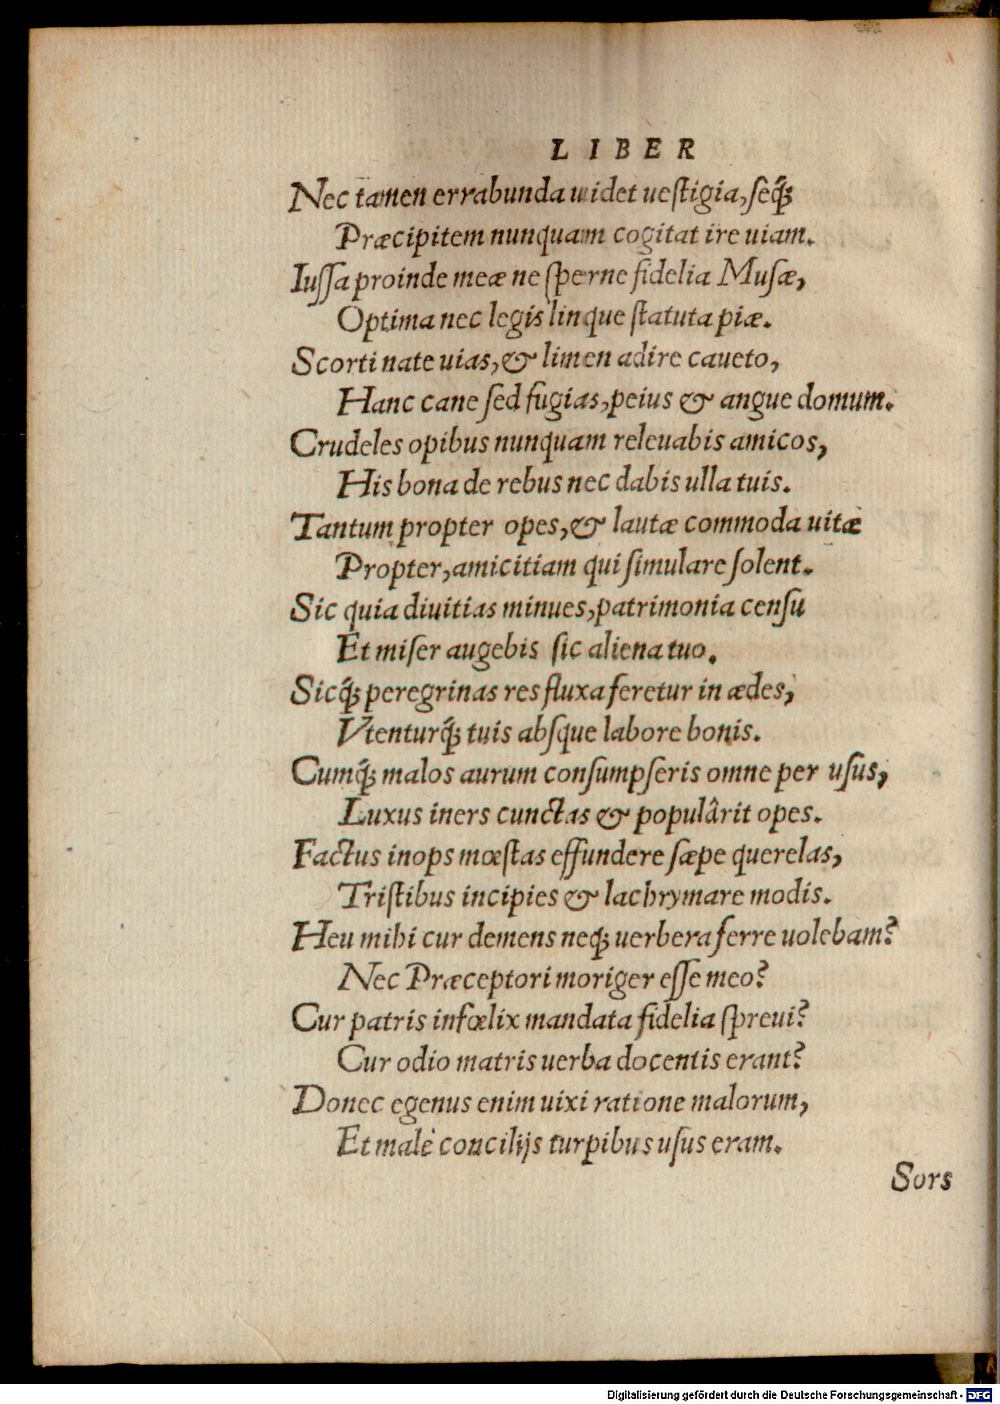 LIBER
Nec tamen errabunda uidet uestigia, seq́;
Præcipitem nunquam cogitat ire uiam.
Iussa proinde meæ ne sperne fidelia Musæ,
Optima nec legis linque statuta piæ.
Scorti nate uias, & limen adire caueto,
Hanc cane sed fugias, peius & angue domum.
Crudeles opibus nunquam releuabis amicos,
His bona de rebus nec dabis ulla tuis.
Tantum propter opes, & lautæ commoda uitæ
Propter, amicitiam qui simulare solent.
Sic quia diuitias minues, patrimonia censu
Et miser augebis sic aliena tuo.
Sicq́; peregrinas res fluxa feretur in ædes,
Vtenturq́; tuis absque labore bonis.
Cumq́; malos aurum consumpseris omne per usus,
Luxus iners cunctas & populârit opes.
Factus inops mœstas effundere sæpe querelas,
Tristibus incipies & lachrymare modis.
Heu mihi cur demens neq; uerbera ferre uolebam?
Nec Præceptori moriger esse meo?
Cur patris infœlix mandata fidelia spreui?
Cur odio matris uerba docentis erant?
Donec egenus enim uixi ratione malorum,
Et malè concilijs turpibus usus eram.
Sors
Digitalisierung gefördert durch die Deutsche Forschungsgemeinschaft - DFG